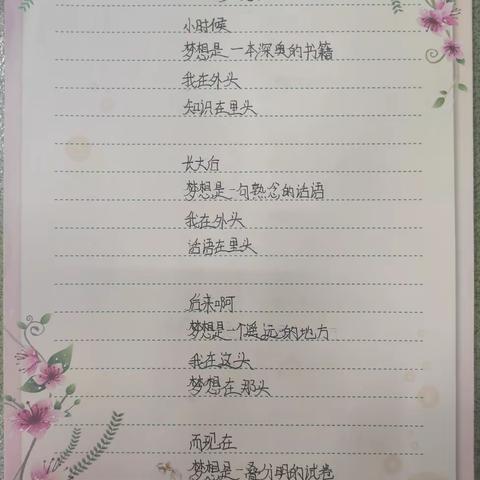 小时候
梦想是一本深奥的书籍
我在外头
知识在里头
长大后
梦想是一句熟念的话语
我在外头
话语在里头
后来啊
梦想是一个遥远的地方
我在这头
梦想在那头
而现在
梦想是一叠分明的试卷